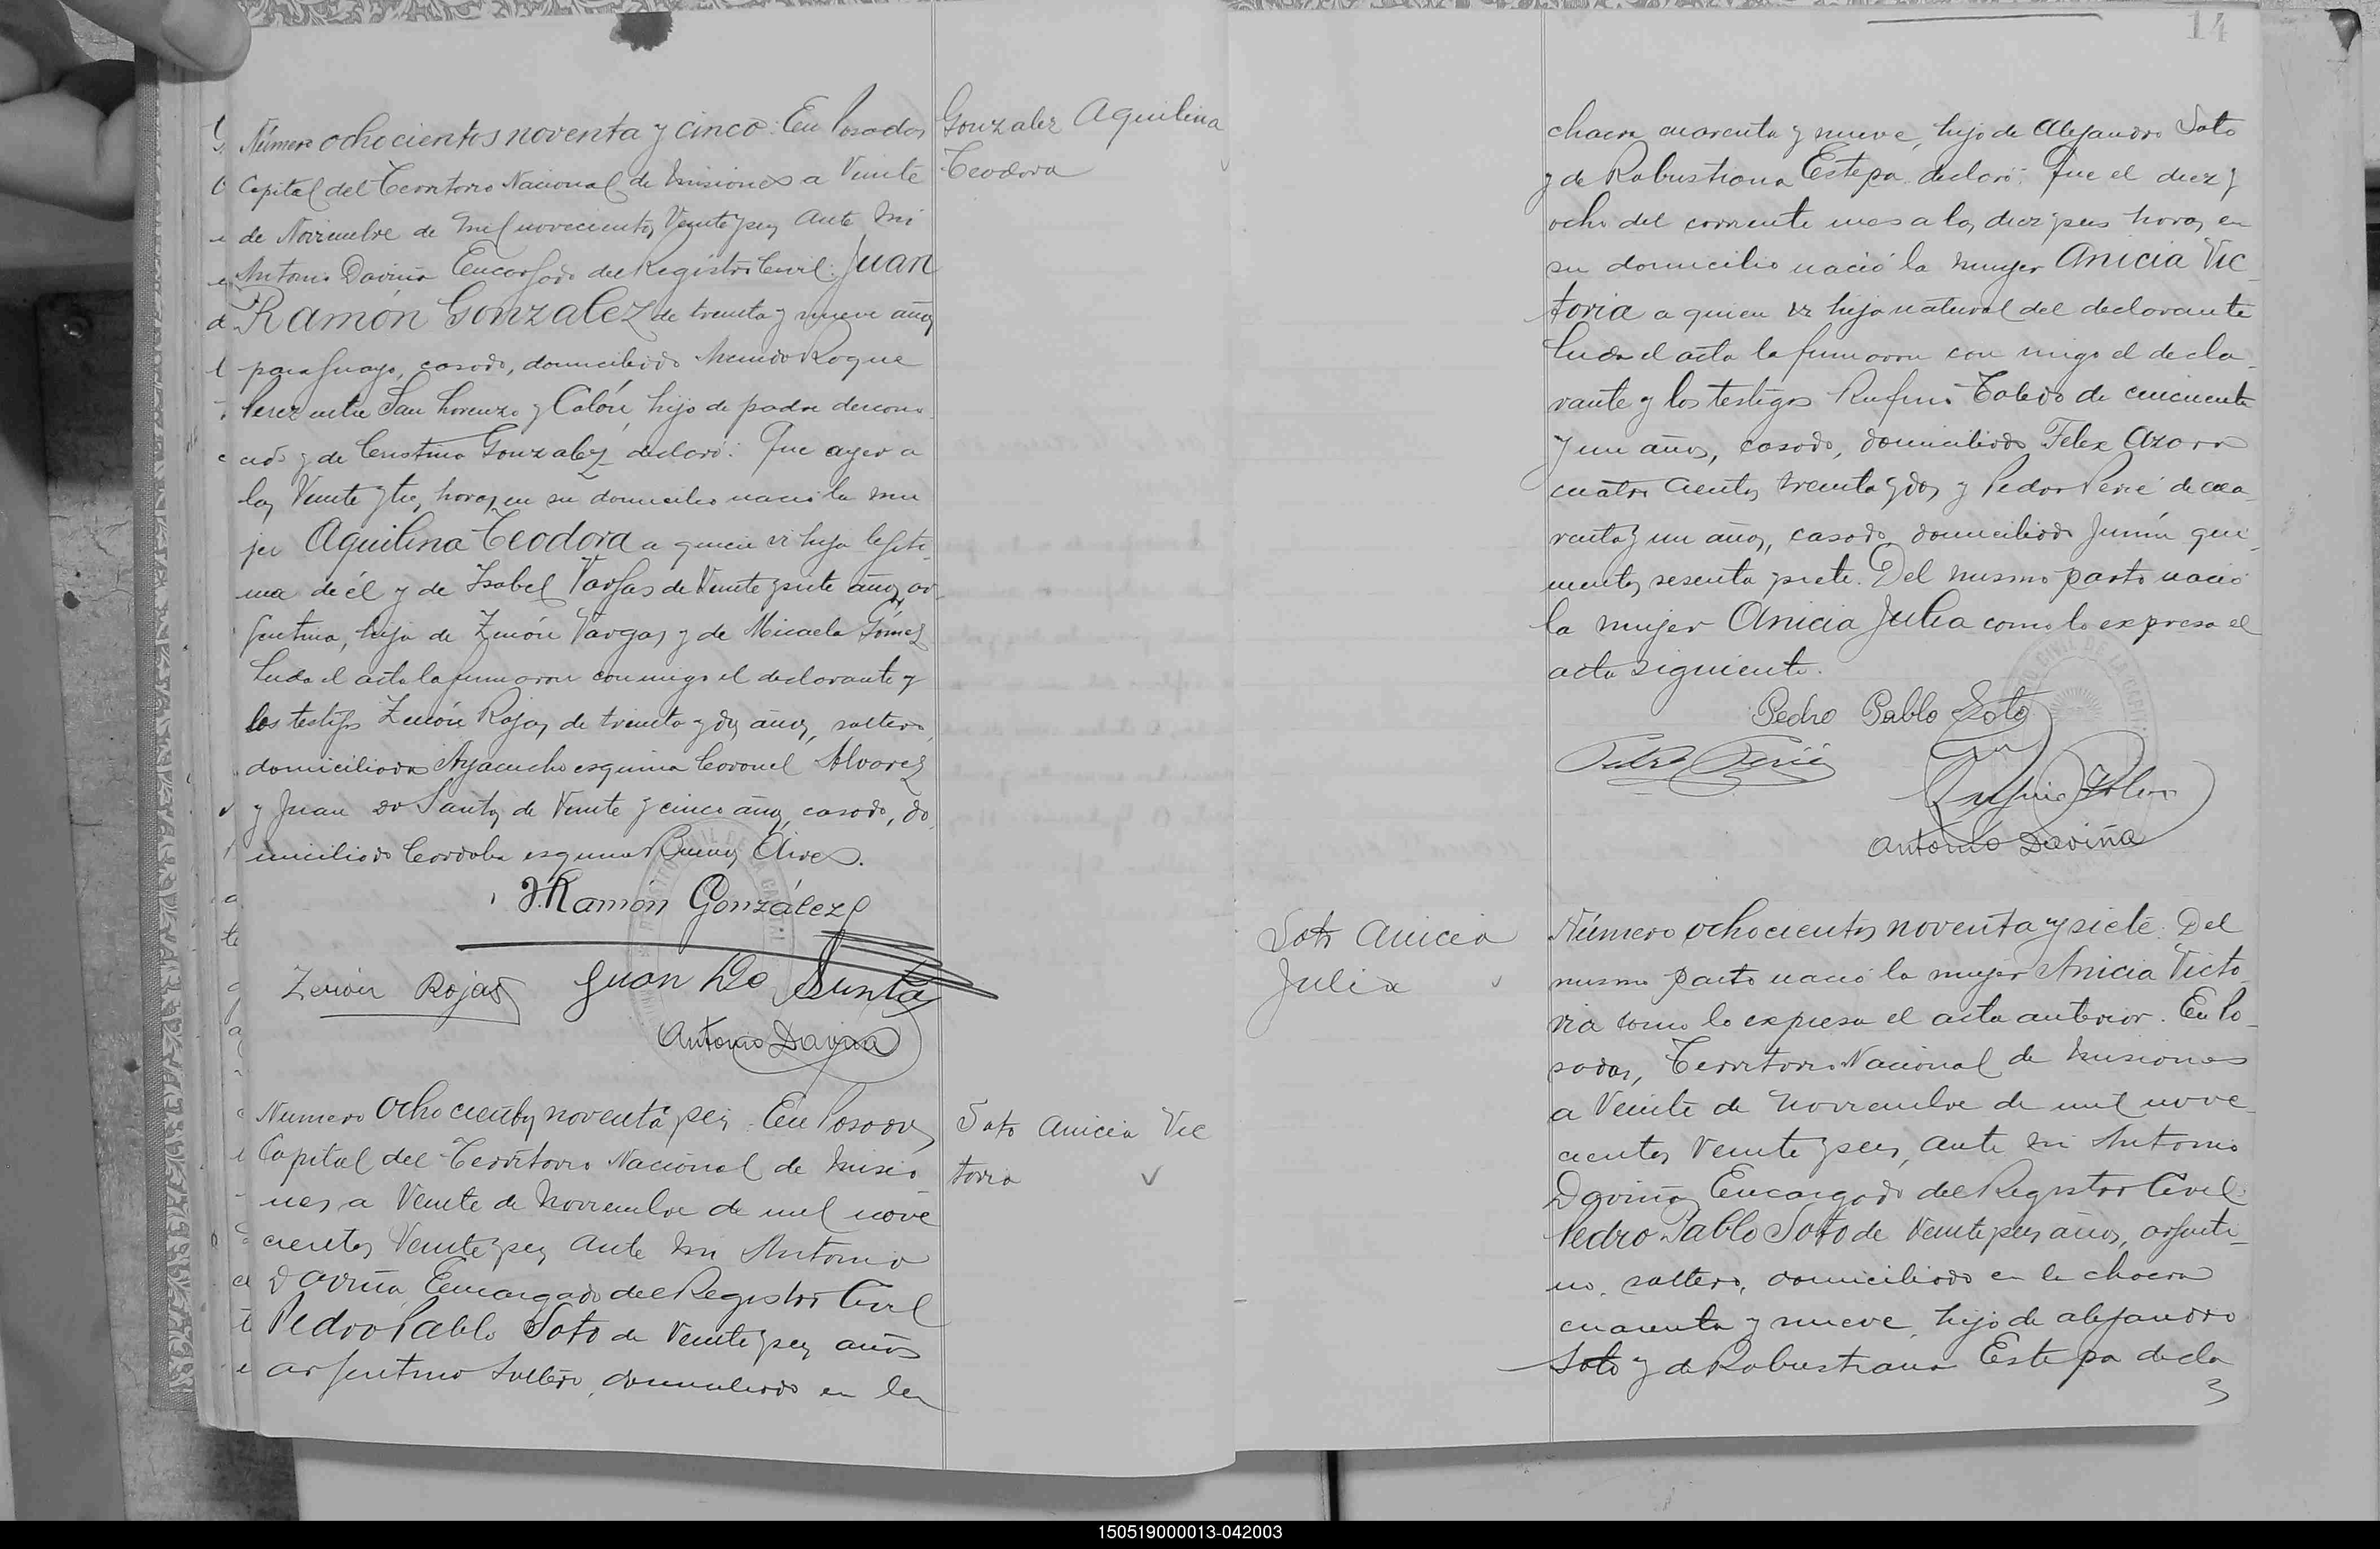 Número ochocientos noventa y cinco: En Posadas
Capital del Territorio Nacional de Misiones a Veinte
de Noviembre de mil novecientos Veinte y seis Ante mi
Antonio Daviña Encargado del Registro Civil: Juan
Ramón Gonzalez de treinta y nueve años
paraguayo, casado, domiciliado Roque
Perez entre San Lorenzo y Colón, hijo de padre descono
cido y de Cristina Gonzalez declaró: Que ayer a
las Veinte y tres horas, en su domicilio nació la mu
jer Aquilina Teodora a quien vi hija legíti
ma de él y de Isabel Vargas de Veinte y siete años, ar
gentina, hija de Zenón Vargas y de Micaela Gómez
Leida el acta la firmaron conmigo el declarante y
los testigos Zenón Rojas, de treinta y dos años, soltero,
domiciliado Ayacucho esquina Coronel Alvarez
y Juan Do Santos de Veinte y cinco años, casado, do
miciliado Cordoba esquina Buenos Aires.
J. Ramón González
Zenón Rojas Juan Do Santos
Antonio Daviña
Gonzalez Aquilina
Teodora
Numero Ochocientos noventa y seis: En Posadas,
Capital del Territorio Nacional de Misio
nes a Veinte de Noviembre de mil nove
cientos Veinte y seis Ante mi Antonio
Daviña Encargado del Registro Civil
Pedro Pablo Soto de Veinte y seis años
argentino soltero, domiciliado en la
Soto Anicia Vic
toria
14
chacra cuarenta y nueve, hijo de Alejandro Soto
y de Robustiana Estepa declaró: Que el diez y
ocho del corriente mes a las diez y seis horas, en
su domicilio nació la mujer Anicia Vic
toria a quien vi hija natural del declarante
Leida el acta la firmaron con migo el decla
rante y los testigos Rufino Toledo de cincuenta
y un años, casado, domiciliado Felix Azara
cuatro cientos treinta y dos y Pedro Perié de cua
renta y un años, casado, domiciliado Junín qui
nientos sesenta y siete. Del mismo parto nació
la mujer Anicia Julia como lo expresa el
acta siguiente.
Pedro Pablo Soto
Pedro Perié
Rufino Toledo
Antonio Daviña
Soto Anicia
Julia
Número ochocientos noventa y siete: Del
mismo parto nació la mujer Anicia Victo
ria como lo expresa el acta anterior. En Po
sadas, Territorio Nacional de Misiones
a Veinte de Noviembre de mil nove
cientos Veinte y seis, ante mi Antonio
Daviña Encargado del Registro Civil:
Pedro Pablo Soto de Veinte y seis años, argenti
no, soltero, domiciliado en la chacra
cuarenta y nueve, hijo de alejandro
Soto y de Robustiana Estepa decla
3
150519000013-042003